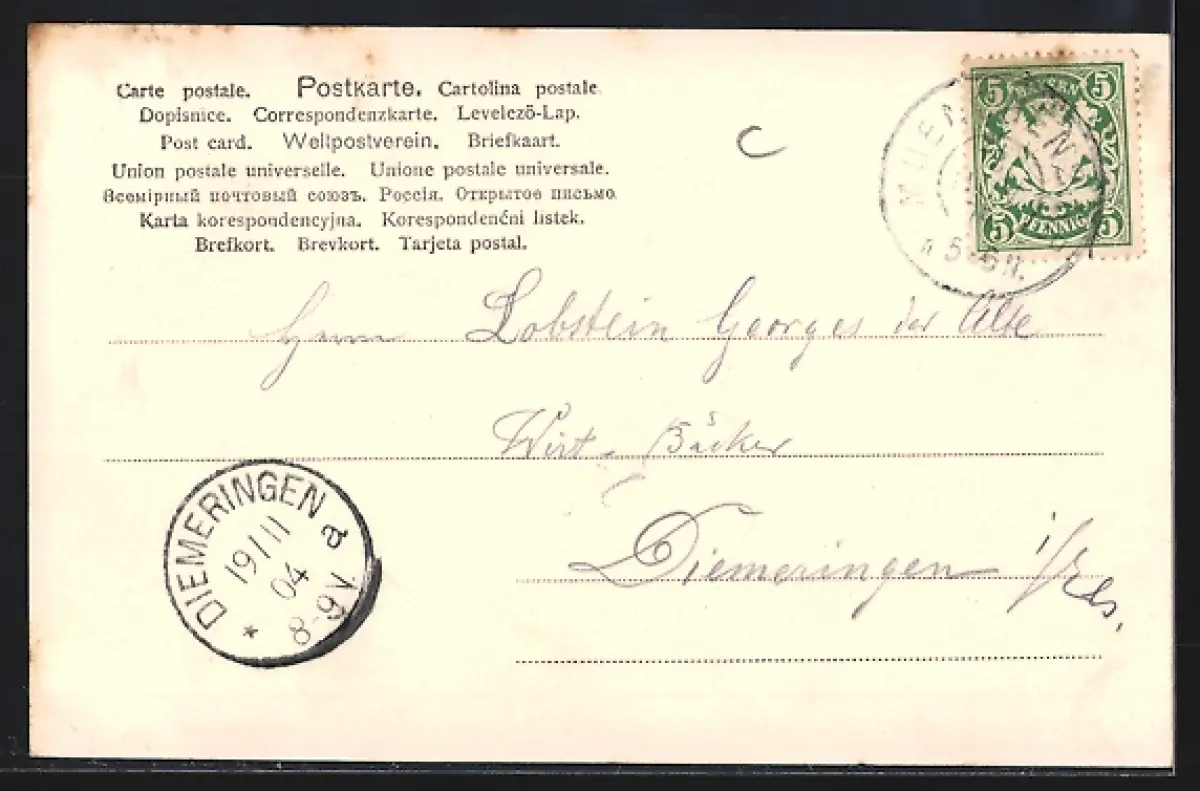 Carte postale. Postkarte. Cartolina postale
Dopisnice. Correspondenzkarte. Levelező-Lap.
Post card. Weltpostverein. Briefkaart.
Union postale universelle. Unione postale universale.
Всемірный почтовый союзъ. Россія. Открытое письмо.
Karta korespondencyjna. Korespondenční listek.
Brefkort. Brevkort. Tarjeta postal.
5 5
BAYERN
PFENNIG
5 5
5-6 N.
Herrn Lobstein Georges der Alte
Wirt - Bäcker
Diemeringen i/Els.
DIEMERINGEN a
19/11
04
8-9V
*